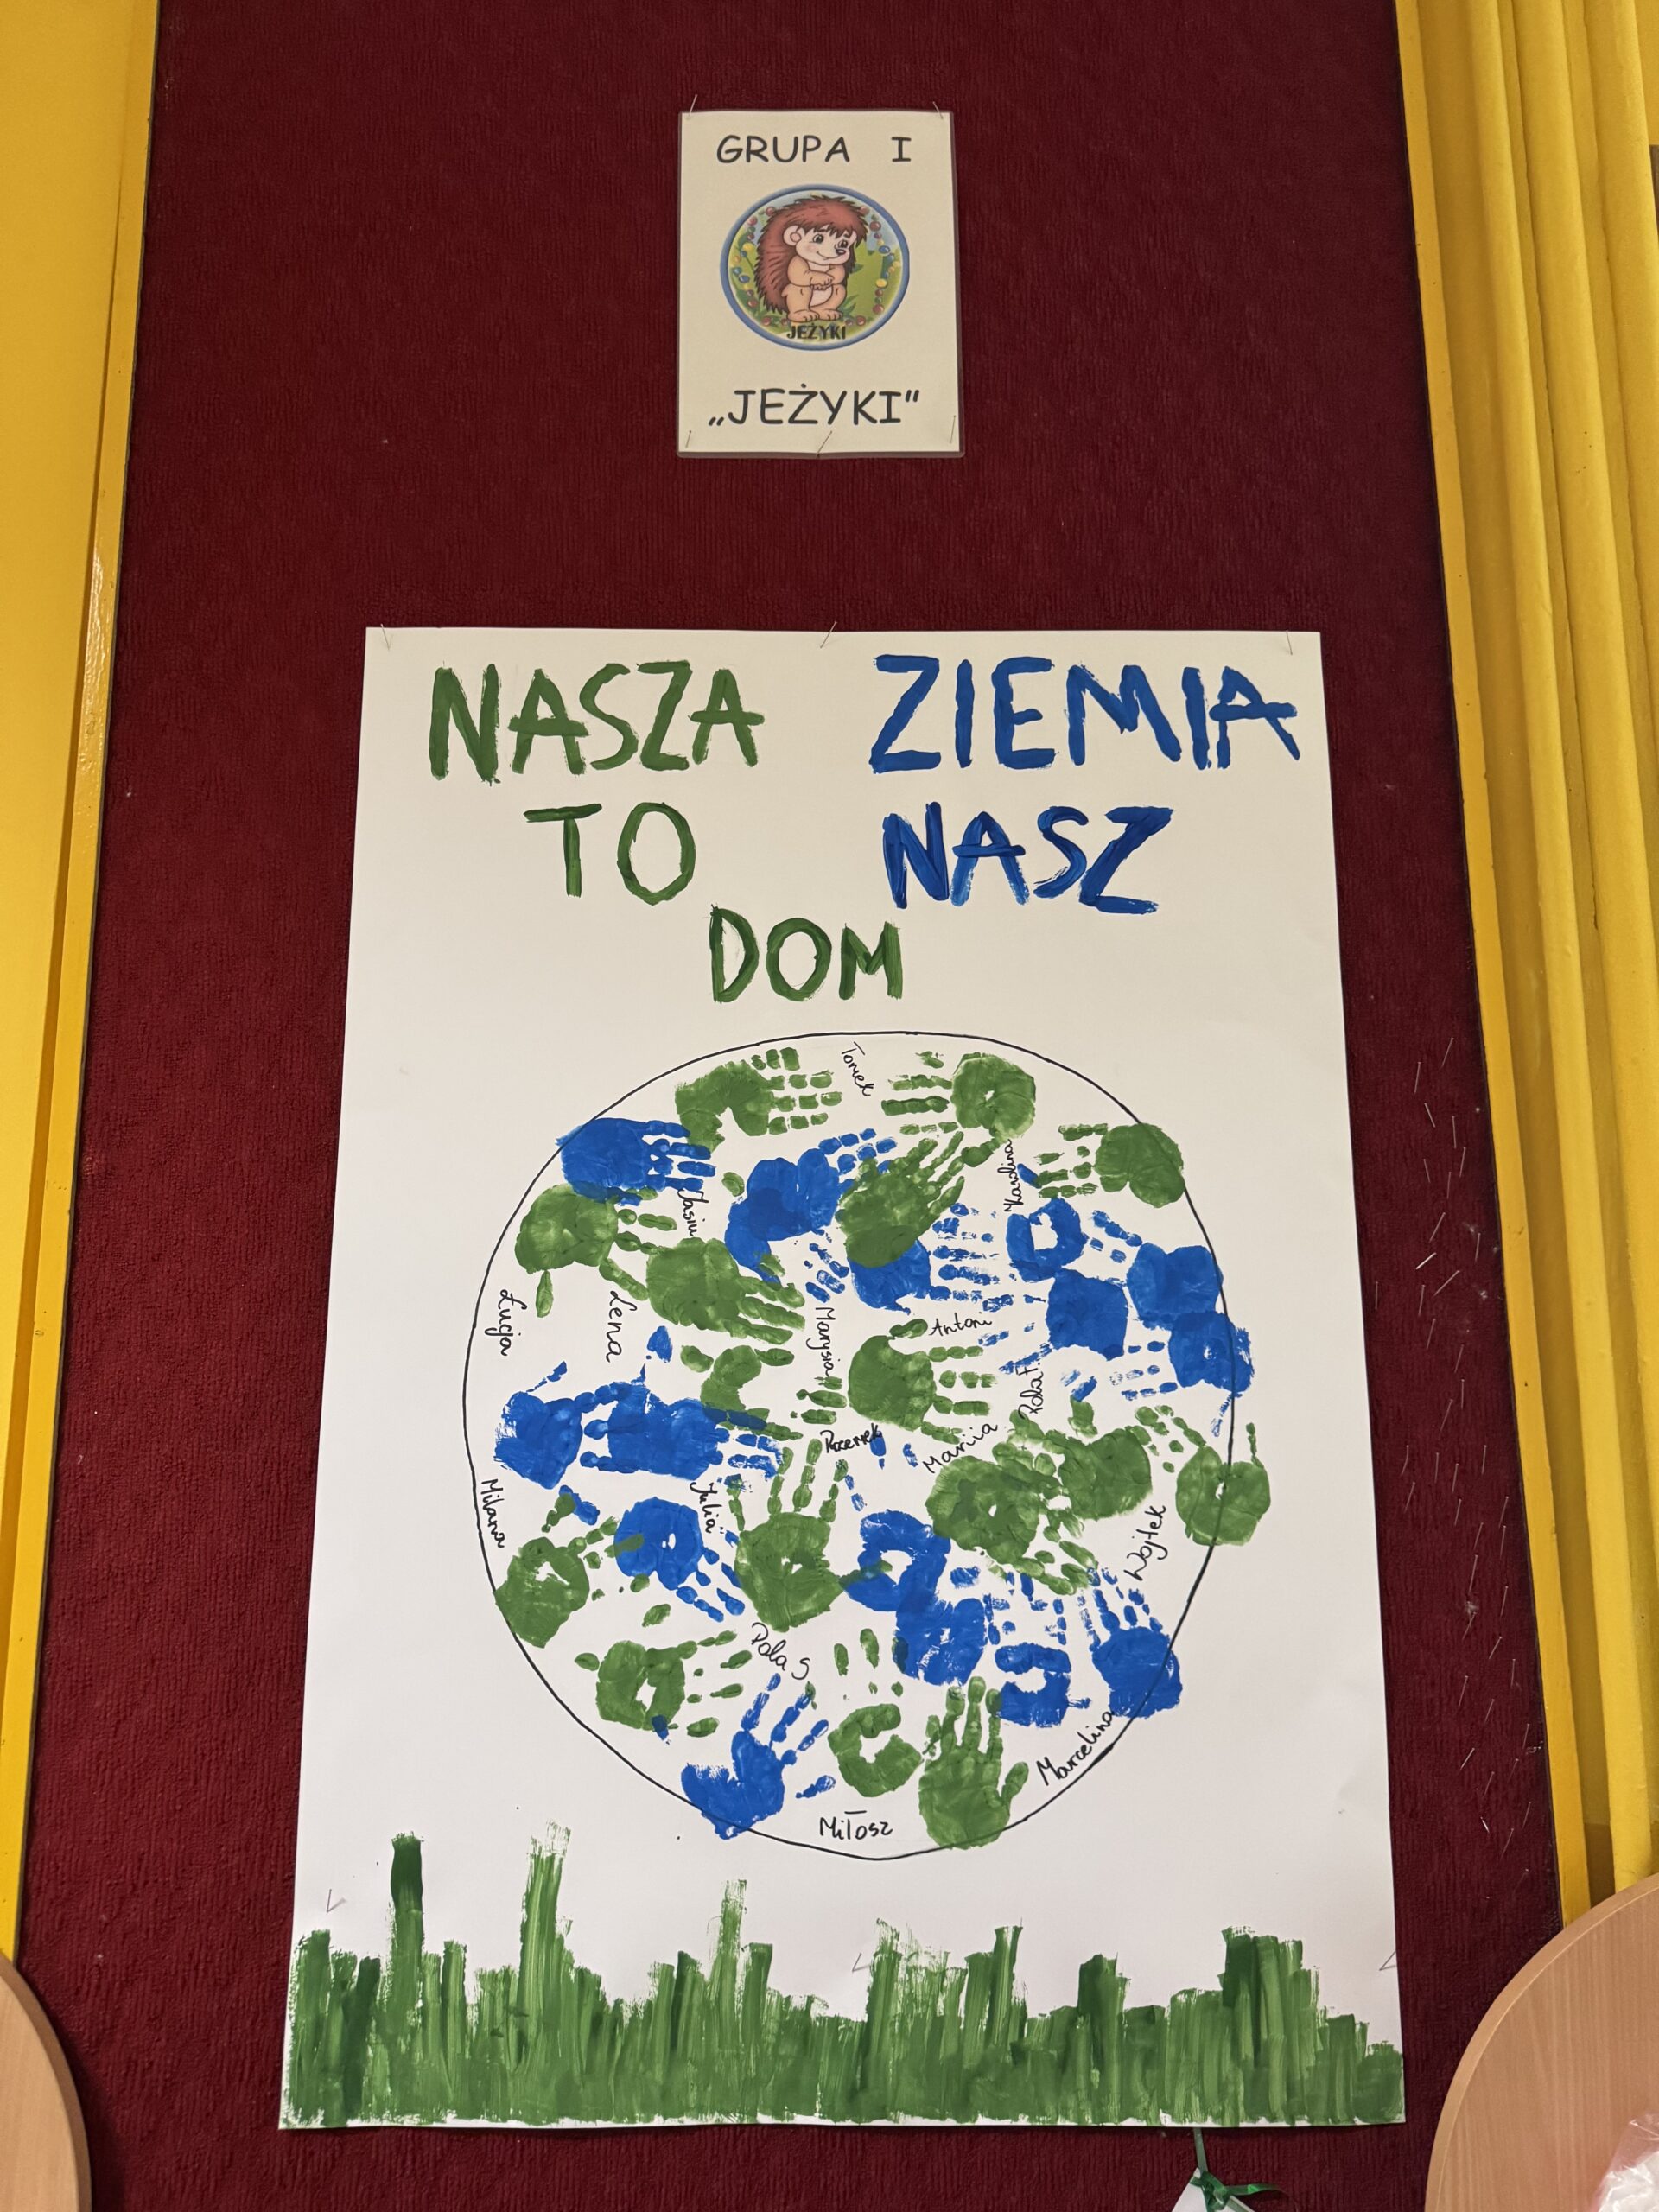 GRUPA I
JEŻYKI
„JEŻYKI”
NASZA ZIEMIA
TO NASZ
DOM
Tomek
Karolina
Jasiu
Łucja
Lena
Marysia
Antoni
Pola T.
Przemek
Mariia
Milana
Julia
Wojtek
Pola S
Marcelina
Miłosz